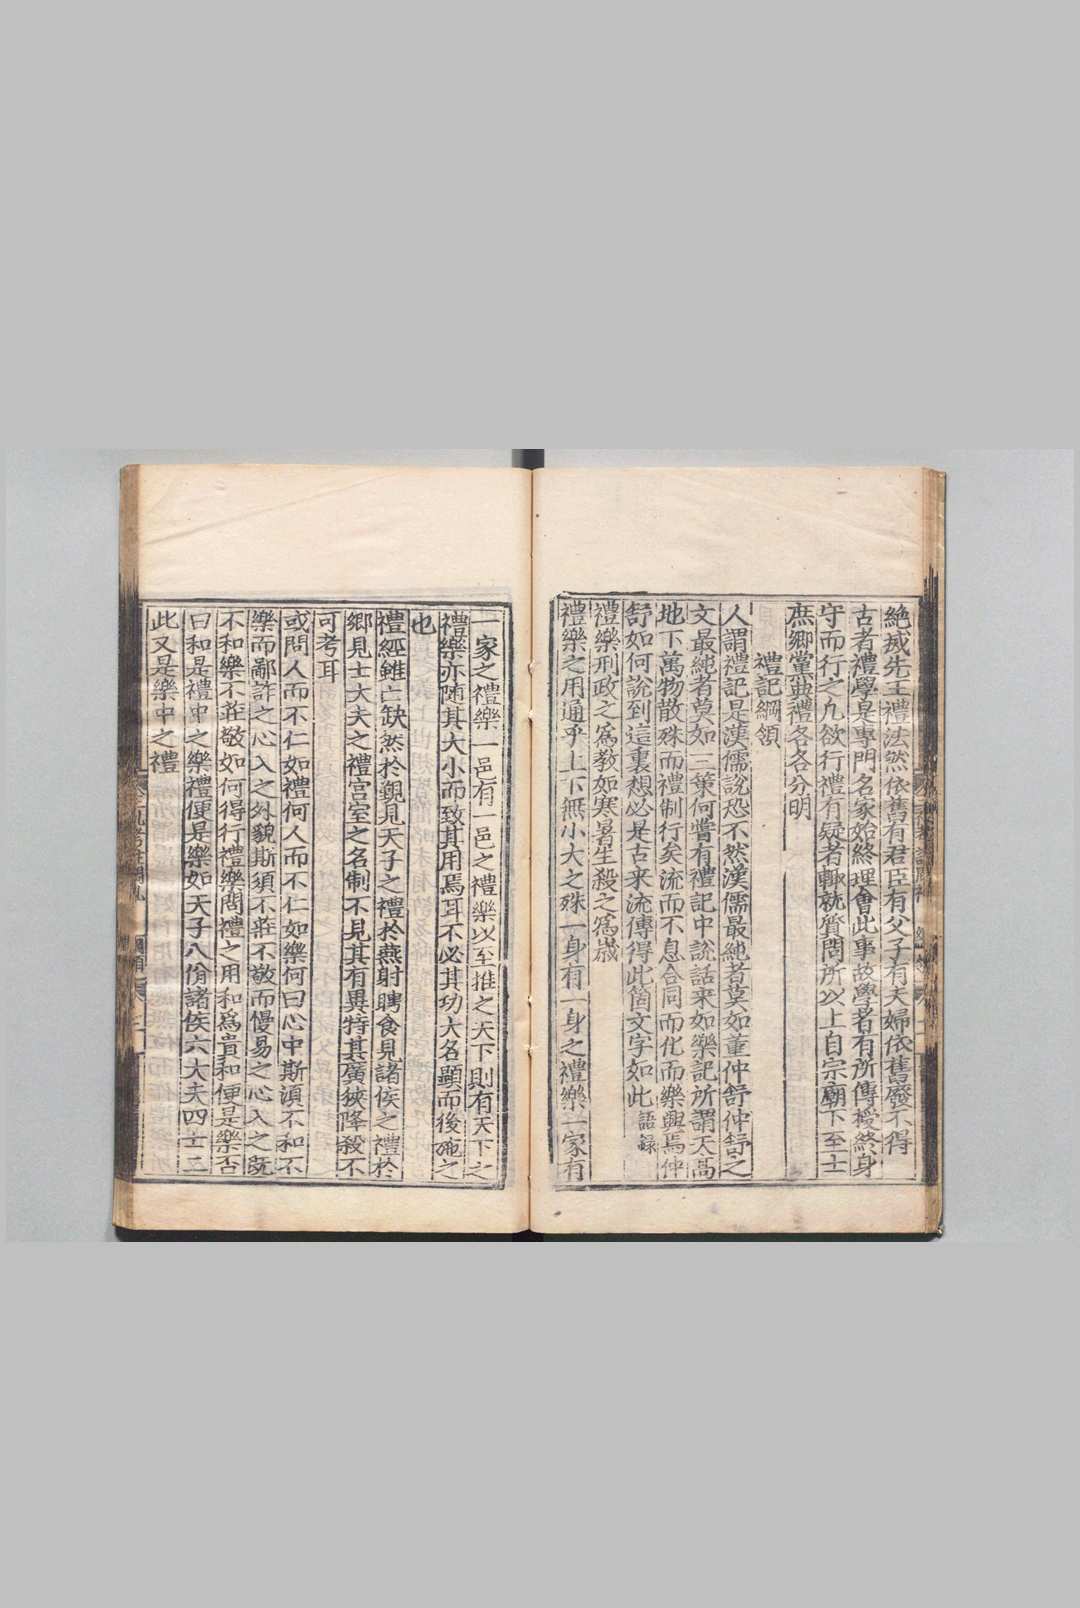 絶滅先王禮法然依舊有君臣有父子有夫婦依舊廢不得
古者禮學是專門名家始終理會此事故學者有所傳授終身
守而行之凡欲行禮有疑者輒就質問所以上自宗廟下至士
庶鄉黨典禮各各分明
禮記綱領
人謂禮記是漢儒說恐不然漢儒最純者莫如董仲舒仲舒之
文最純者莫如三策何嘗有禮記中說話來如樂記所謂天高
地下萬物散殊而禮制行矣流而不息合同而化而樂興焉仲
舒如何說到這裏想必是古來流傳得此箇文字如此語録
禮樂刑政之爲教如寒暑生殺之爲歲
禮樂之用通乎上下無小大之殊一身有一身之禮樂一家有
一家之禮樂一邑有一邑之禮樂以至推之天下則有天下之
禮樂亦随其大小而致其用焉耳不必其功大名顯而後施之
也
禮經雖亡缺然於覲見天子之禮於燕射聘食見諸侯之禮於
鄉見士大夫之禮宫室之名制不見其有異特其廣狹降殺不
可考耳
或問人而不仁如禮何人而不仁如樂何曰心中斯須不和不
樂而鄙詐之心入之外貌斯須不莊不敬而慢易之心入之既
不和樂不莊敬如何得行禮樂問禮之用和爲貴和便是樂否
曰和是禮中之樂禮便是樂如天子八佾諸侯六大夫四士二
此又是樂中之禮